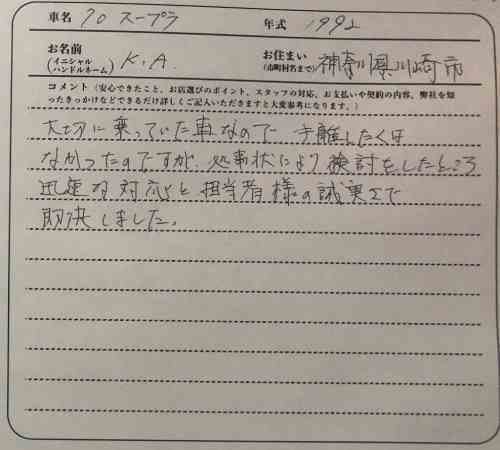 車名 70 スープラ 年式 1992
お名前 (イニシャル ハンドルネーム) K.A. お住まい (市町村名まで) 神奈川県川崎市
コメント (安心できたこと、お店選びのポイント、スタッフの対応、お支払いや契約の内容、弊社を知
ったきっかけなどできるだけ詳しくご記入いただきますと大変参考になります。)
大切に乗っていた車なので 手離したくは
なかったのですが、処事状により検討をしたところ
迅速な対応と担当者様の誠実さで
即決しました。